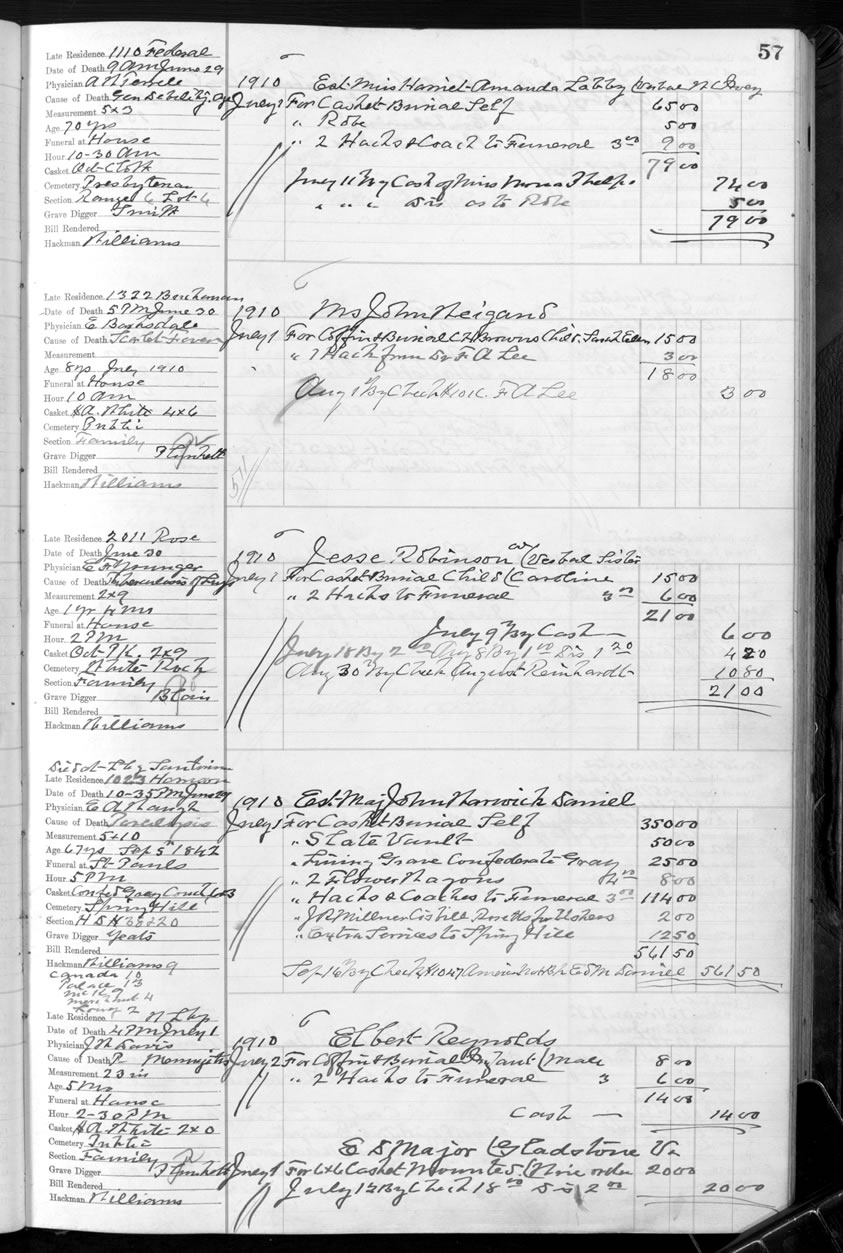 57
Late Residence 1110 Federal
Date of Death 9 AM June 29
Physician A W Terrell
Cause of Death Gen Debility, Age
Measurement 5x3
Age 70 yrs
Funeral at House
Hour 10-30 AM
Casket Oct Cloth
Cemetery Presbyterian
Section Range 6 Lot 6
Grave Digger Smith
Bill Rendered
Hackman Williams
1910 Est Miss Harriet Amanda Labby (Verbal
July 1 For Casket & Burial Self 65 00
" Robe 5 00
" 2 Hacks & Coach to Funeral 3 00 9 00
79 00
July 11 By Cash of Miss Phelps 74 00
" " " Dis as to Robe 5 00
79 00
Late Residence 1322 Buchanan
Date of Death 5 PM June 30
Physician E Barksdale
Cause of Death Scarlet Fever
Measurement
Age 8 yrs July 1910
Funeral at House
Hour 10 AM
Casket SA. White 4x6
Cemetery Public
Section Family
Grave Digger
Bill Rendered
Hackman Williams
1910 Ms John Weigand
July 1 For Coffin & Burial C H Browns Child. Sarah Ellen 15 00
" 1 Hack from Dr F A Lee 3 00
18 00
Aug 1st By Check F A Lee 3 00
Late Residence 2011 Rose
Date of Death June 30
Physician E A Younger
Cause of Death Tuberculosis of Lungs
Measurement 2x9
Age 1 yr 4 Ms
Funeral at House
Hour 2 PM
Casket Oct 2x9
Cemetery White Rock
Section Family
Grave Digger Blair
Bill Rendered
Hackman Williams
1910 Jesse Robinson col (Verbal Sister
July 1 For Casket & Burial Child (Caroline 15 00
" 2 Hacks to Funeral 3 00 6 00
21 00
July 9th By Cash — 6 00
July 18 By 2 00 Aug 8 By 1 00 Dis 1 20 4 20
Aug 30th By Check August Reinhardt 10 80
21 00
Died at Lbg Sanitarium
Late Residence 1023 Harrison
Date of Death 10-35 PM June 29
Physician E A
Cause of Death Paralysis
Measurement 5x10
Age 67 yrs Sep 5th 1842
Funeral at St Pauls
Hour 5 PM
Casket Confed Gray Couch
Cemetery Spring Hill
Section H S H
Grave Digger Yeats
Bill Rendered
Hackman Williams 9
Canada 10
Palace 13
1910 Est Maj John Warwick Daniel
July 1 For Casket & Burial Self 350 00
" Slate Vault 50 00
" Lining Grave Confederate Gray 25 00
" 2 Flower Wagons 4 00 8 00
" Hacks & Coaches to Funeral 3 00 114 00
" J R Millner Cos bill for Ushers 2 00
" Extra Services to Spring Hill 12 50
561 50
Sep 16th By Check Ed M Daniel 561 50
Late Residence N Lbg
Date of Death 4 PM July 1
Physician J W Davis
Cause of Death Meningitis
Measurement 23 in
Age 5 Mo
Funeral at House
Hour 2-30 PM
Casket SA White 2x0
Cemetery Public
Section Family
Grave Digger
Bill Rendered
Hackman Williams
1910 Elbert Reynolds
July 2 For Coffin & Burial Infant (Male 8 00
" 2 Hacks to Funeral 3 6 00
14 00
Cash — 14 00
E S Major (Gladstone Va
July 1 For 6x6 Casket Mounted (Phone order 20 00
July 12 By Check 18 00 Dis 2 00 20 00